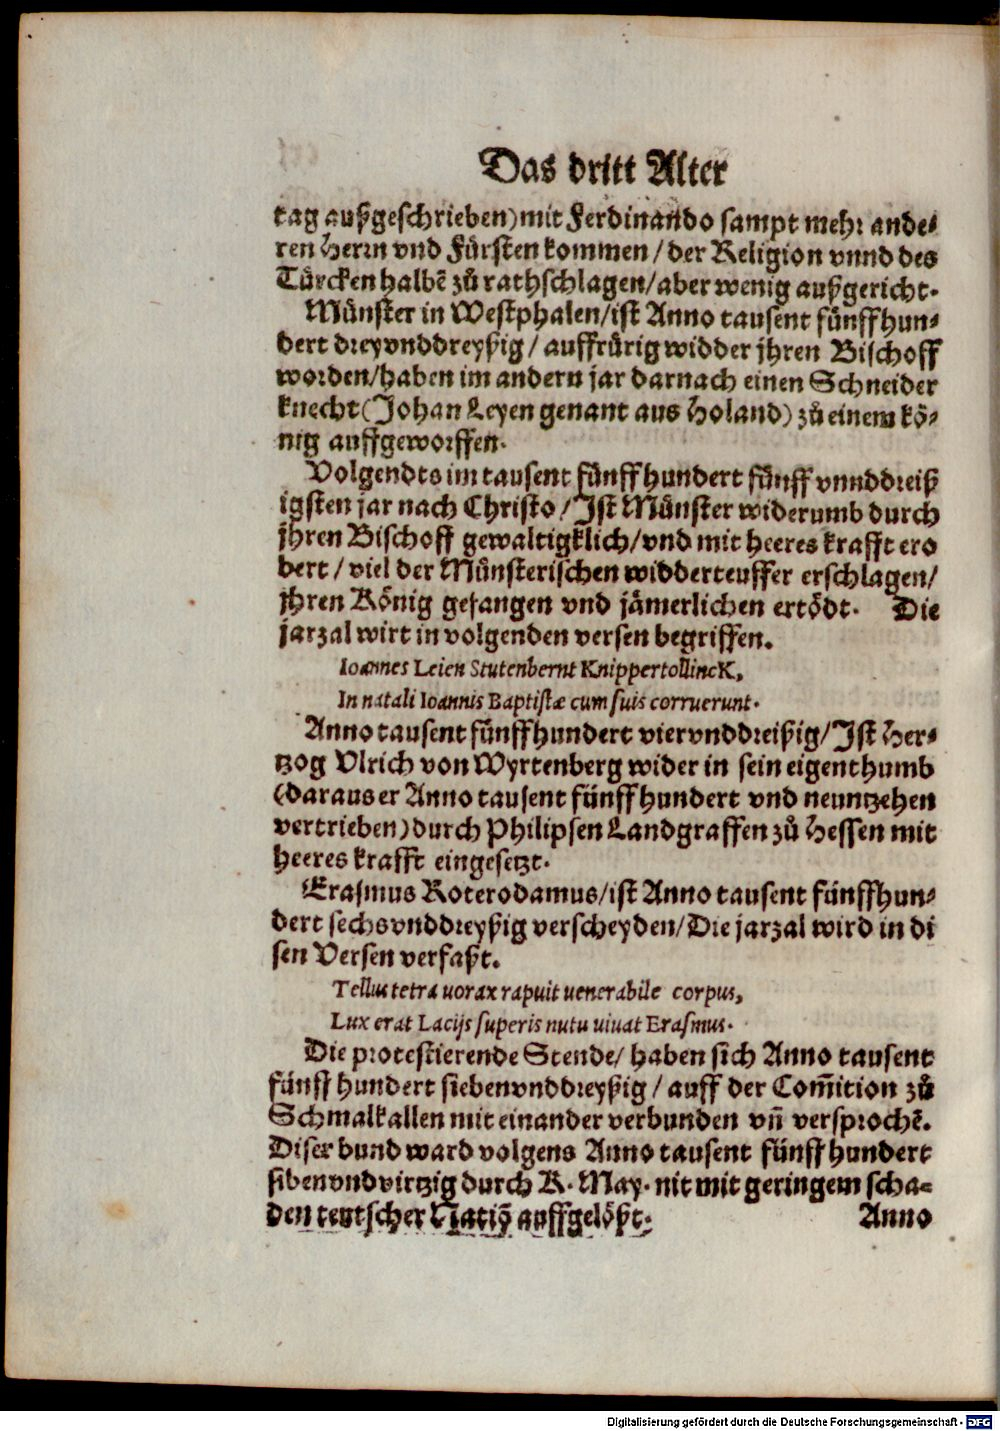 Das dritt Alter
tag außgeschrieben) mit Ferdinando sampt mehr ande⸗
ren Herrn vnd Fürsten kommen / der Religion vnnd des
Türcken halbē zů rathschlagen / aber wenig außgericht.
Münster in Westphalen / ist Anno tausent fünffhun⸗
dert dreyvnddreyßig / auffrürig widder jhren Bischoff
worden / haben im andern jar darnach einen Schneider
knecht (Johan Leyen genant aus Holand) zů einem kö⸗
nig auffgeworffen.
Volgendts im tausent fünffhundert fünff vnnddreiß
igsten jar nach Christo / Ist Münster widerumb durch
jhren Bischoff gewaltigklich / vnd mit heeres krafft ero
bert / viel der Münsterischen widderteuffer erschlagen /
jhren König gefangen vnd jämerlichen ertödt. Die
jarzal wirt in volgenden versen begriffen.
Ioannes Leien Stutenbernt KnippertollincK,
In natali Ioannis Baptistæ cum suis corruerunt.
Anno tausent fünffhundert viervnddreißig / Ist Her⸗
tzog Vlrich von Wyrtenberg wider in sein eigenthumb
(daraus er Anno tausent fünffhundert vnd neuntzehen
vertrieben) durch Philipsen Landgraffen zů Hessen mit
heeres krafft eingesetzt.
Erasmus Roterodamus / ist Anno tausent fünffhun⸗
dert sechsvnddreyßig verscheyden / Die jarzal wird in di
sen Versen verfaßt.
Tellus tetra uorax rapuit uenerabile corpus,
Lux erat Lacijs superis nutu uiuat Erasmus.
Die protestierende Stende / haben sich Anno tausent
fünff hundert siebenvnddreyßig / auff der Com̄ition zů
Schmalkallen mit einander verbunden vn̄ versprochē.
Diser bund ward volgens Anno tausent fünff hundert
sibenvndvirtzig durch K. May. nit mit geringem scha⸗
den teutscher Natiō auffgelößt. Anno
Digitalisierung gefördert durch die Deutsche Forschungsgemeinschaft - DFG